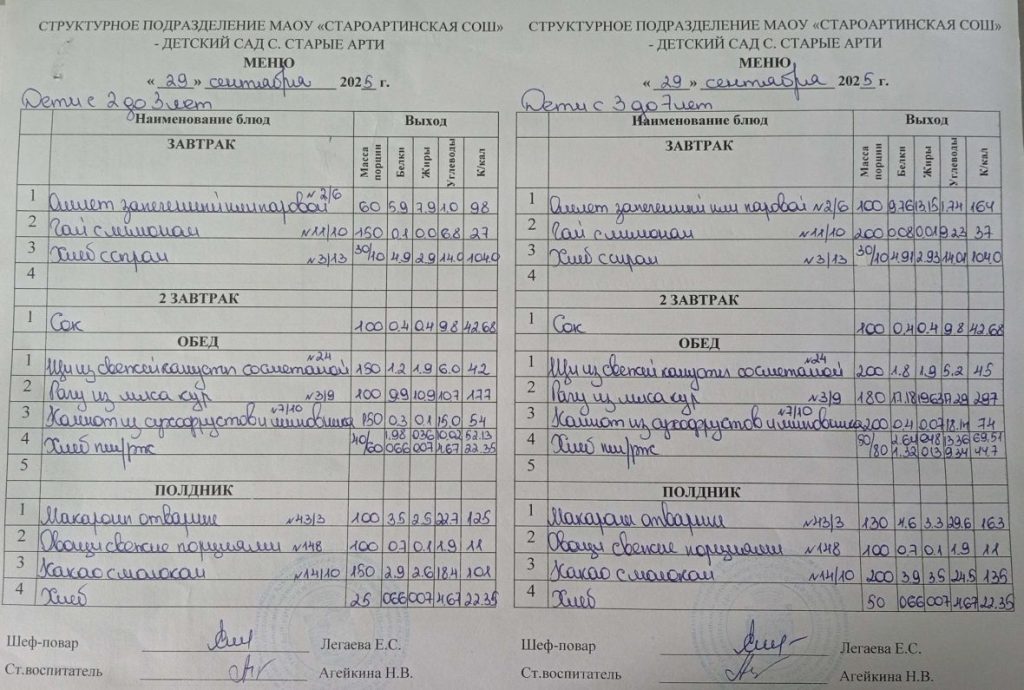 СТРУКТУРНОЕ ПОДРАЗДЕЛЕНИЕ МАОУ «СТАРОАРТИНСКАЯ СОШ»
- ДЕТСКИЙ САД С. СТАРЫЕ АРТИ
МЕНЮ
« 29 » сентября 2025 г.
Дети с 2 до 3 лет
Наименование блюд Выход
ЗАВТРАК Масса порции Белки Жиры Углеводы К/кал
1 Омлет запеченный или паровой №2/6 60 5.9 7.9 1.0 98
2 Чай с лимоном №11/10 150 0.1 0.0 6.8 27
3 Хлеб с сыром №3/13 30/10 4.9 2.9 14.0 104.0
4
2 ЗАВТРАК
1 Сок 100 0.4 0.4 9.8 42.68
ОБЕД
1 Щи из свежей капусты со сметаной №24 150 1.2 1.9 6.0 42
2 Рагу из мяса кур №3/9 100 9.9 10.9 10.7 177
3 Компот из сухофруктов и шиповника №7/10 150 0.3 0.1 15.0 54
4 Хлеб пш/рж 40/60 1.98 0.36 10.02 52.13
0.66 0.07 4.67 22.35
5
ПОЛДНИК
1 Макароны отварные №43/3 100 3.5 2.5 22.7 125
2 Овощи свежие порциями №148 100 0.7 0.1 1.9 11
3 Какао с молоком №14/10 150 2.9 2.6 18.4 101
4 Хлеб 25 0.66 0.07 4.67 22.35
Шеф-повар Легаева Е.С.
Ст.воспитатель Агейкина Н.В.
СТРУКТУРНОЕ ПОДРАЗДЕЛЕНИЕ МАОУ «СТАРОАРТИНСКАЯ СОШ»
- ДЕТСКИЙ САД С. СТАРЫЕ АРТИ
МЕНЮ
« 29 » сентября 2025 г.
Дети с 3 до 7 лет
Наименование блюд Выход
ЗАВТРАК Масса порции Белки Жиры Углеводы К/кал
1 Омлет запеченный или паровой №2/6 100 9.76 13.15 1.74 164
2 Чай с лимоном №11/10 200 0.08 0.01 9.23 37
3 Хлеб с сыром №3/13 30/10 4.91 2.93 14.01 104.0
4
2 ЗАВТРАК
1 Сок 100 0.4 0.4 9.8 42.68
ОБЕД
1 Щи из свежей капусты со сметаной №24 200 1.8 1.9 5.2 45
2 Рагу из мяса кур №3/9 180 17.18 19.63 17.29 297
3 Компот из сухофруктов и шиповника №7/10 200 0.4 0.07 18.14 74
4 Хлеб пш/рж 50/80 2.64 0.48 13.36 69.51
1.32 0.13 9.34 44.7
5
ПОЛДНИК
1 Макароны отварные №43/3 130 4.6 3.3 29.6 163
2 Овощи свежие порциями №148 100 0.7 0.1 1.9 11
3 Какао с молоком №14/10 200 3.9 3.5 24.5 135
4 Хлеб 50 0.66 0.07 4.67 22.35
Шеф-повар Легаева Е.С.
Ст.воспитатель Агейкина Н.В.